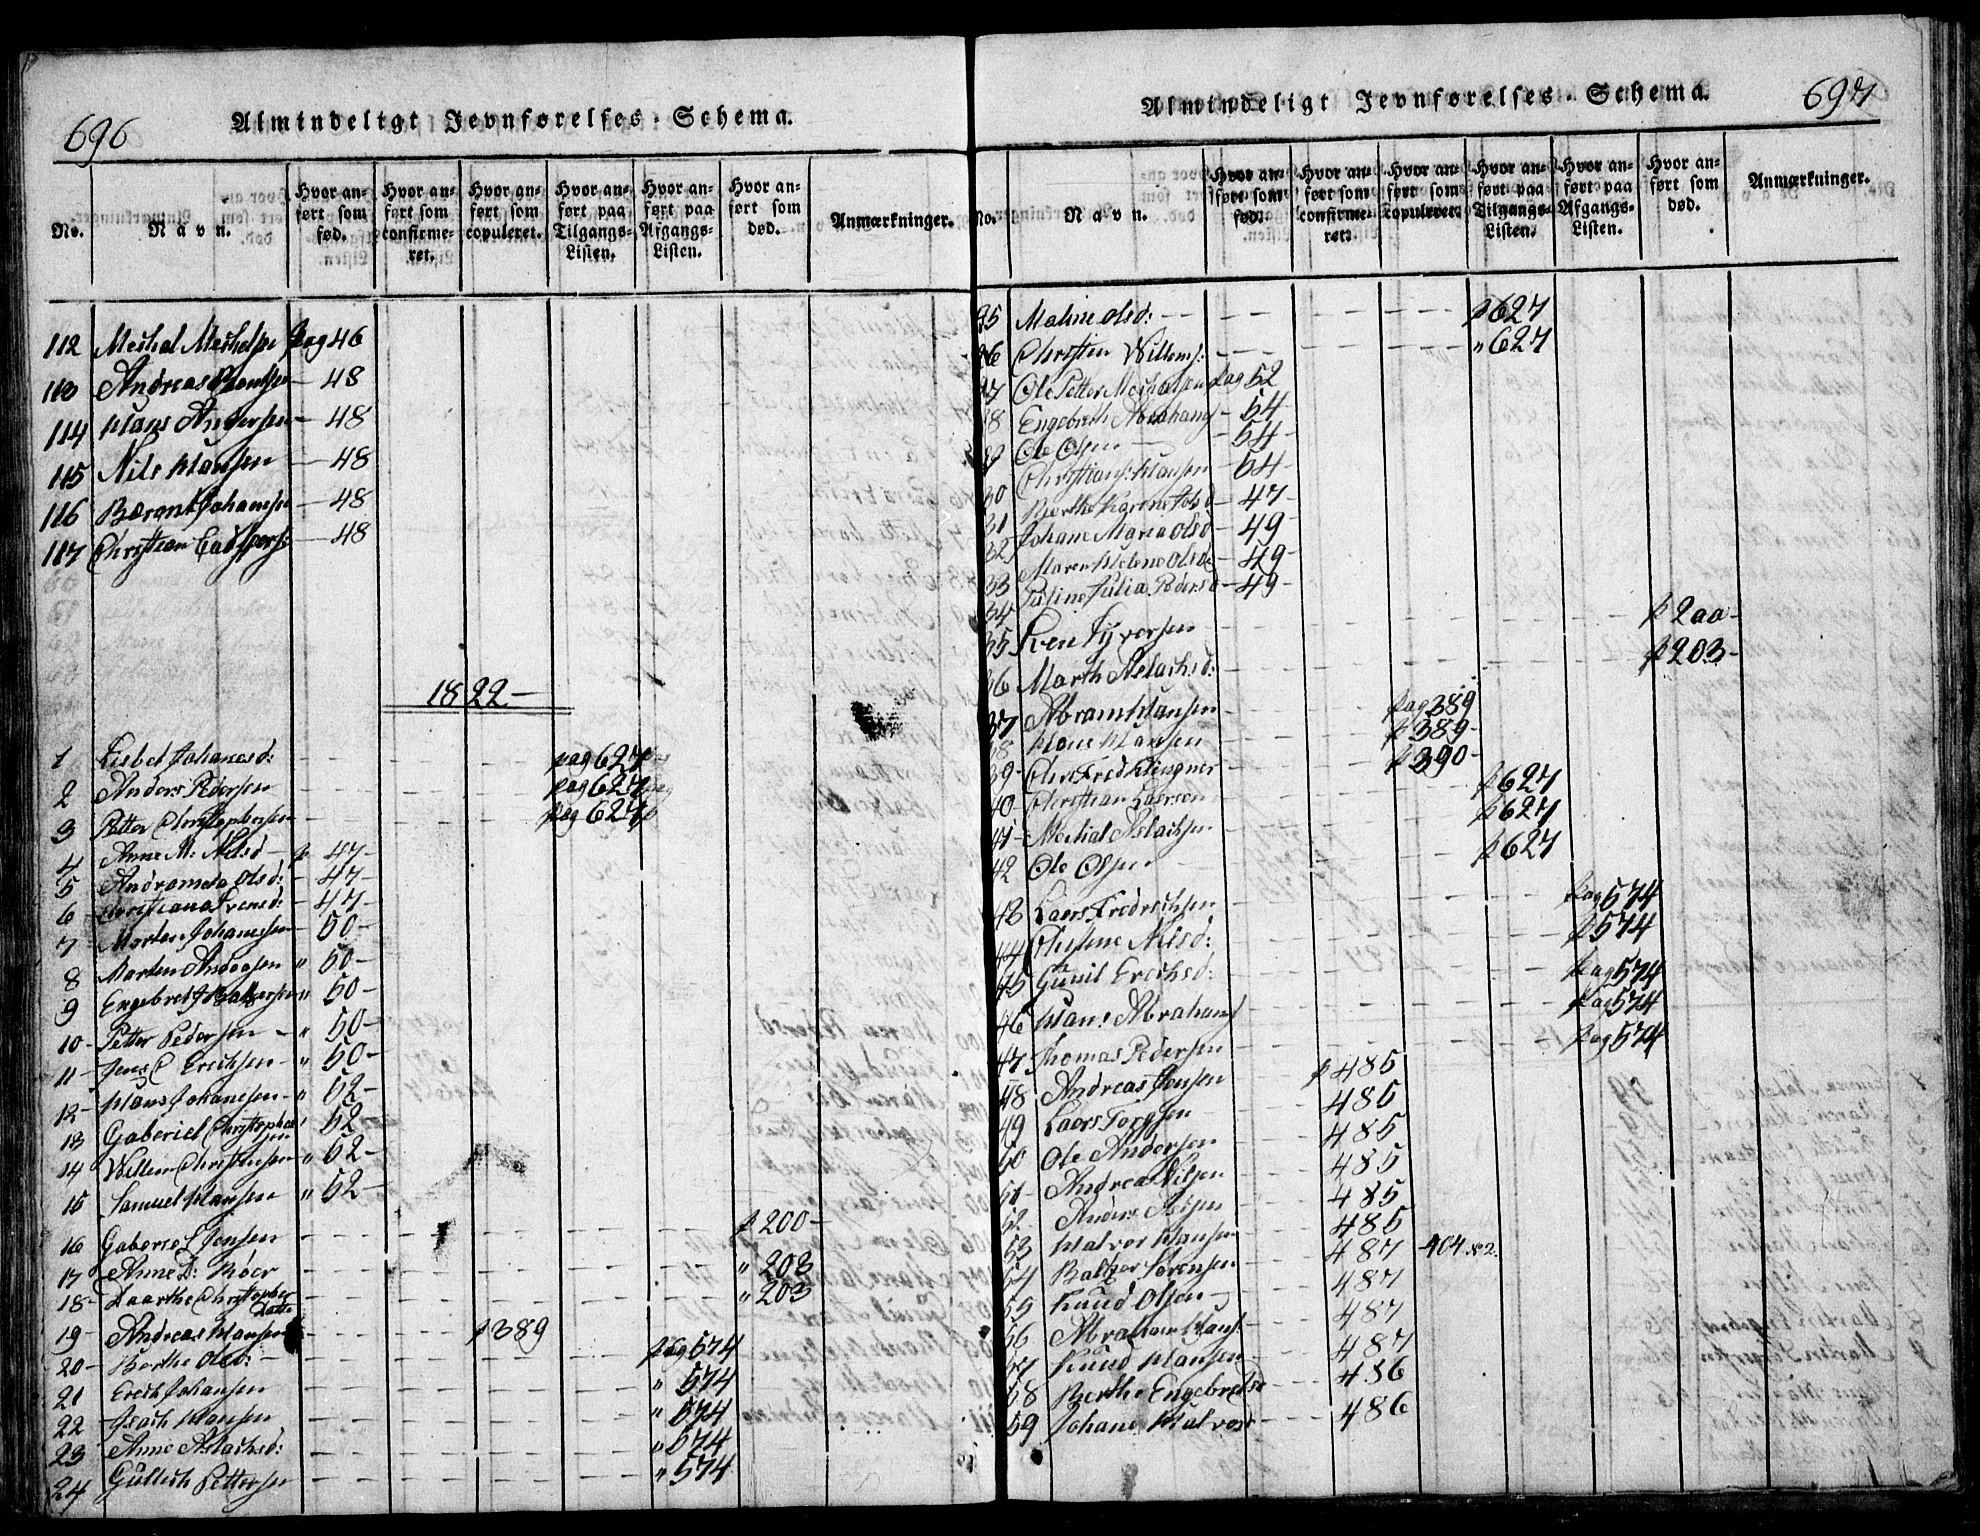 696
Almindeligt Jevnførelses-Schema.
No. Navn. Hvor anført som fød. Hvor anført som confirmeret. Hvor anført som copuleret. Hvor anført paa Tilgangs-Listen. Hvor anført paa Afgangs-Listen. Hvor anført som død. Anmærkninger.
112 Meshel Meshelsen pag 46
113 Andreas 48
114 Hans Andersen 48
115 Nils Hansen 48
116 Bærent Johansen 48
117 Christian 48
1822
1 Lisbet Johanesd: pag 627
2 Anders Pedersen pag 627
3 Petter Christophersen pag 627
4 Anne M: Nilsd p 47
5 Andromeda Olsd: 47
6 Christiana Svensd: 47
7 Morten Johannesen 50
8 Marten 50
9 Engebret 50
10 Petter Pedersen " 50
11 Jens C Erichsen " 50
12 Hans Johannesen " 52
13 Gaberiel Christophersen " 52
14 Willem Christensen " 52
15 Samuel Hansen " 52
16 Gaberiel Jensen p 200
17 Anne D: Roer " 203
18 Daarthe Christopherdatter " 203
19 Andreas Hansen p 389
20 Berthe Olsd: pag 574
21 Erich Johansen " 574
22 Isach Hansen " 574
23 Anne Aslachsd: " 574
24 Gullich Pettersen " 574
697
Almindeligt Jevnførelses-Schema.
No. Navn. Hvor anført som fød. Hvor anført som confirmeret. Hvor anført som copuleret. Hvor anført paa Tilgangs-Listen. Hvor anført paa Afgangs-Listen. Hvor anført som død. Anmærkninger.
25 Maline Olsd: p 627
26 Christen Willems: " 627
27 Ole Petter pag 52
28 Engebreth Abrahams 54
29 Ole Olsen 54
30 Christians: Hansen 54
31 Berthe Karene 47
32 Johane Maria Olsd 49
33 Maren Helene Olsd 49
34 Juline Julia Pedersd 49
35 Sven p 200
36 Marth Aslachsd: p 203
37 Abram Hansen pag 389
38 Hans Hansen p 389
39 Chr: Fred Klingner p 390
40 Christian Laersen p 627
41 Meshel Aslachsen p 627
42 Ole Olsen p 627
43 Laers Fredrichsen pag 574
44 Christine Nilsd: p 574
45 Gunil Erichsd: pag 574
46 Hans Abrahams pag 574
47 Thomas Pedersen pag 574
48 Andreas Jensen p 485
49 Laers 485
50 Ole Andersen 485
51 Andreas Nilsen 485
52 Anders 485
53 Halvor Hansen 485
54 Baltzer Sørensen 487 404 No 2.
55 Knud Olsen 487
56 Abraham Hans: 487
57 Knud Hansen 487
58 Berthe Engebretsd 486
59 Johane Halvors 486